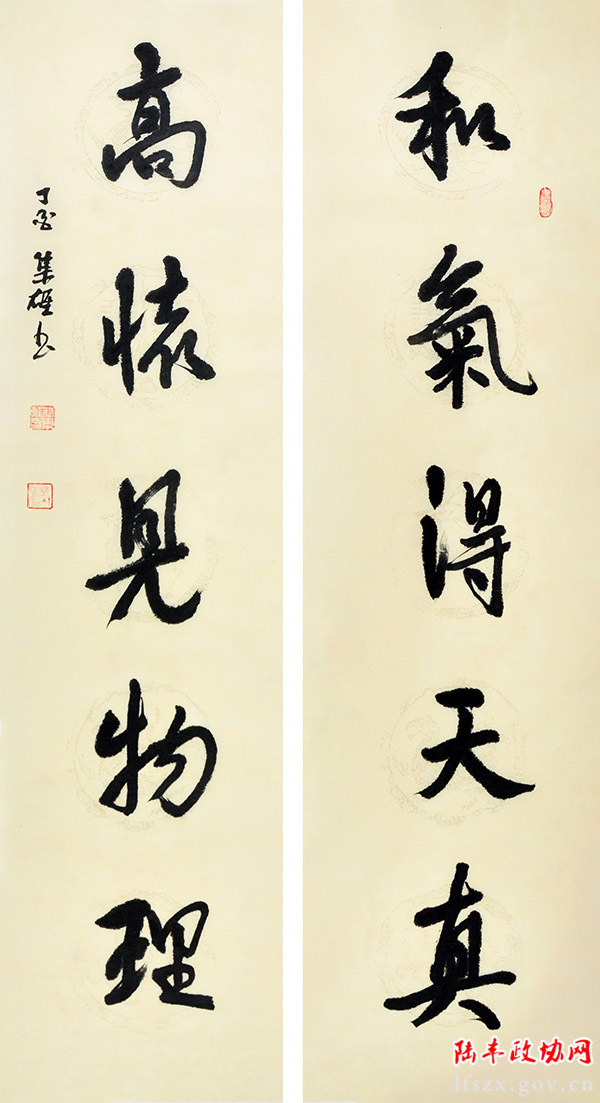 和氣得天真
高懷見物理
丁酉 集雄书
陆丰政协网
lfszx.gov.cn